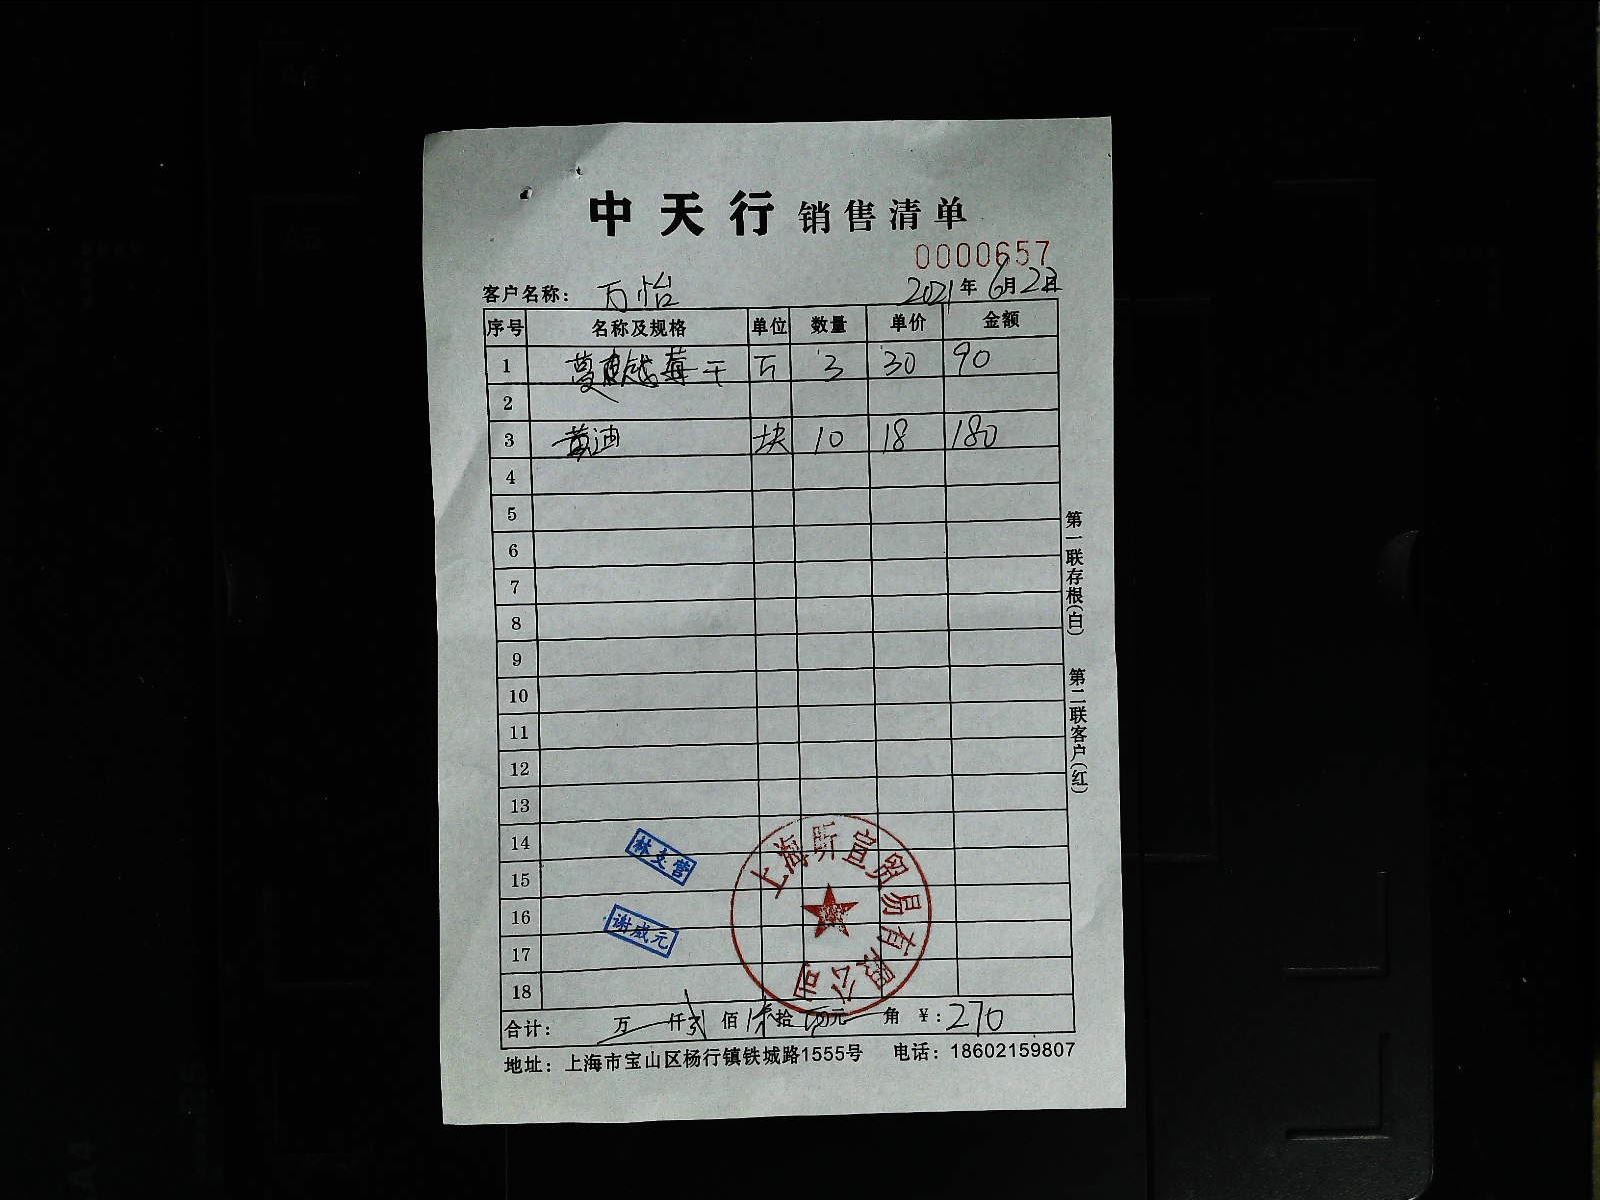 中天行 销售清单
0000657
客户名称： 万怡 2021年6月2日
序号 名称及规格 单位 数量 单价 金额
1 蔓越莓干 3 30 90
2
3 黄油 块 10 18 180
4
5
6
7
8
9
10
11
12
13
14
15
16
17
18
林支营
谢成元
上海昕宣贸易有限公司
合计： 万 仟 贰佰 柒拾 元 角 ￥：270
地址：上海市宝山区杨行镇铁城路1555号 电话：18602159807
第一联存根(白) 第二联客户(红)